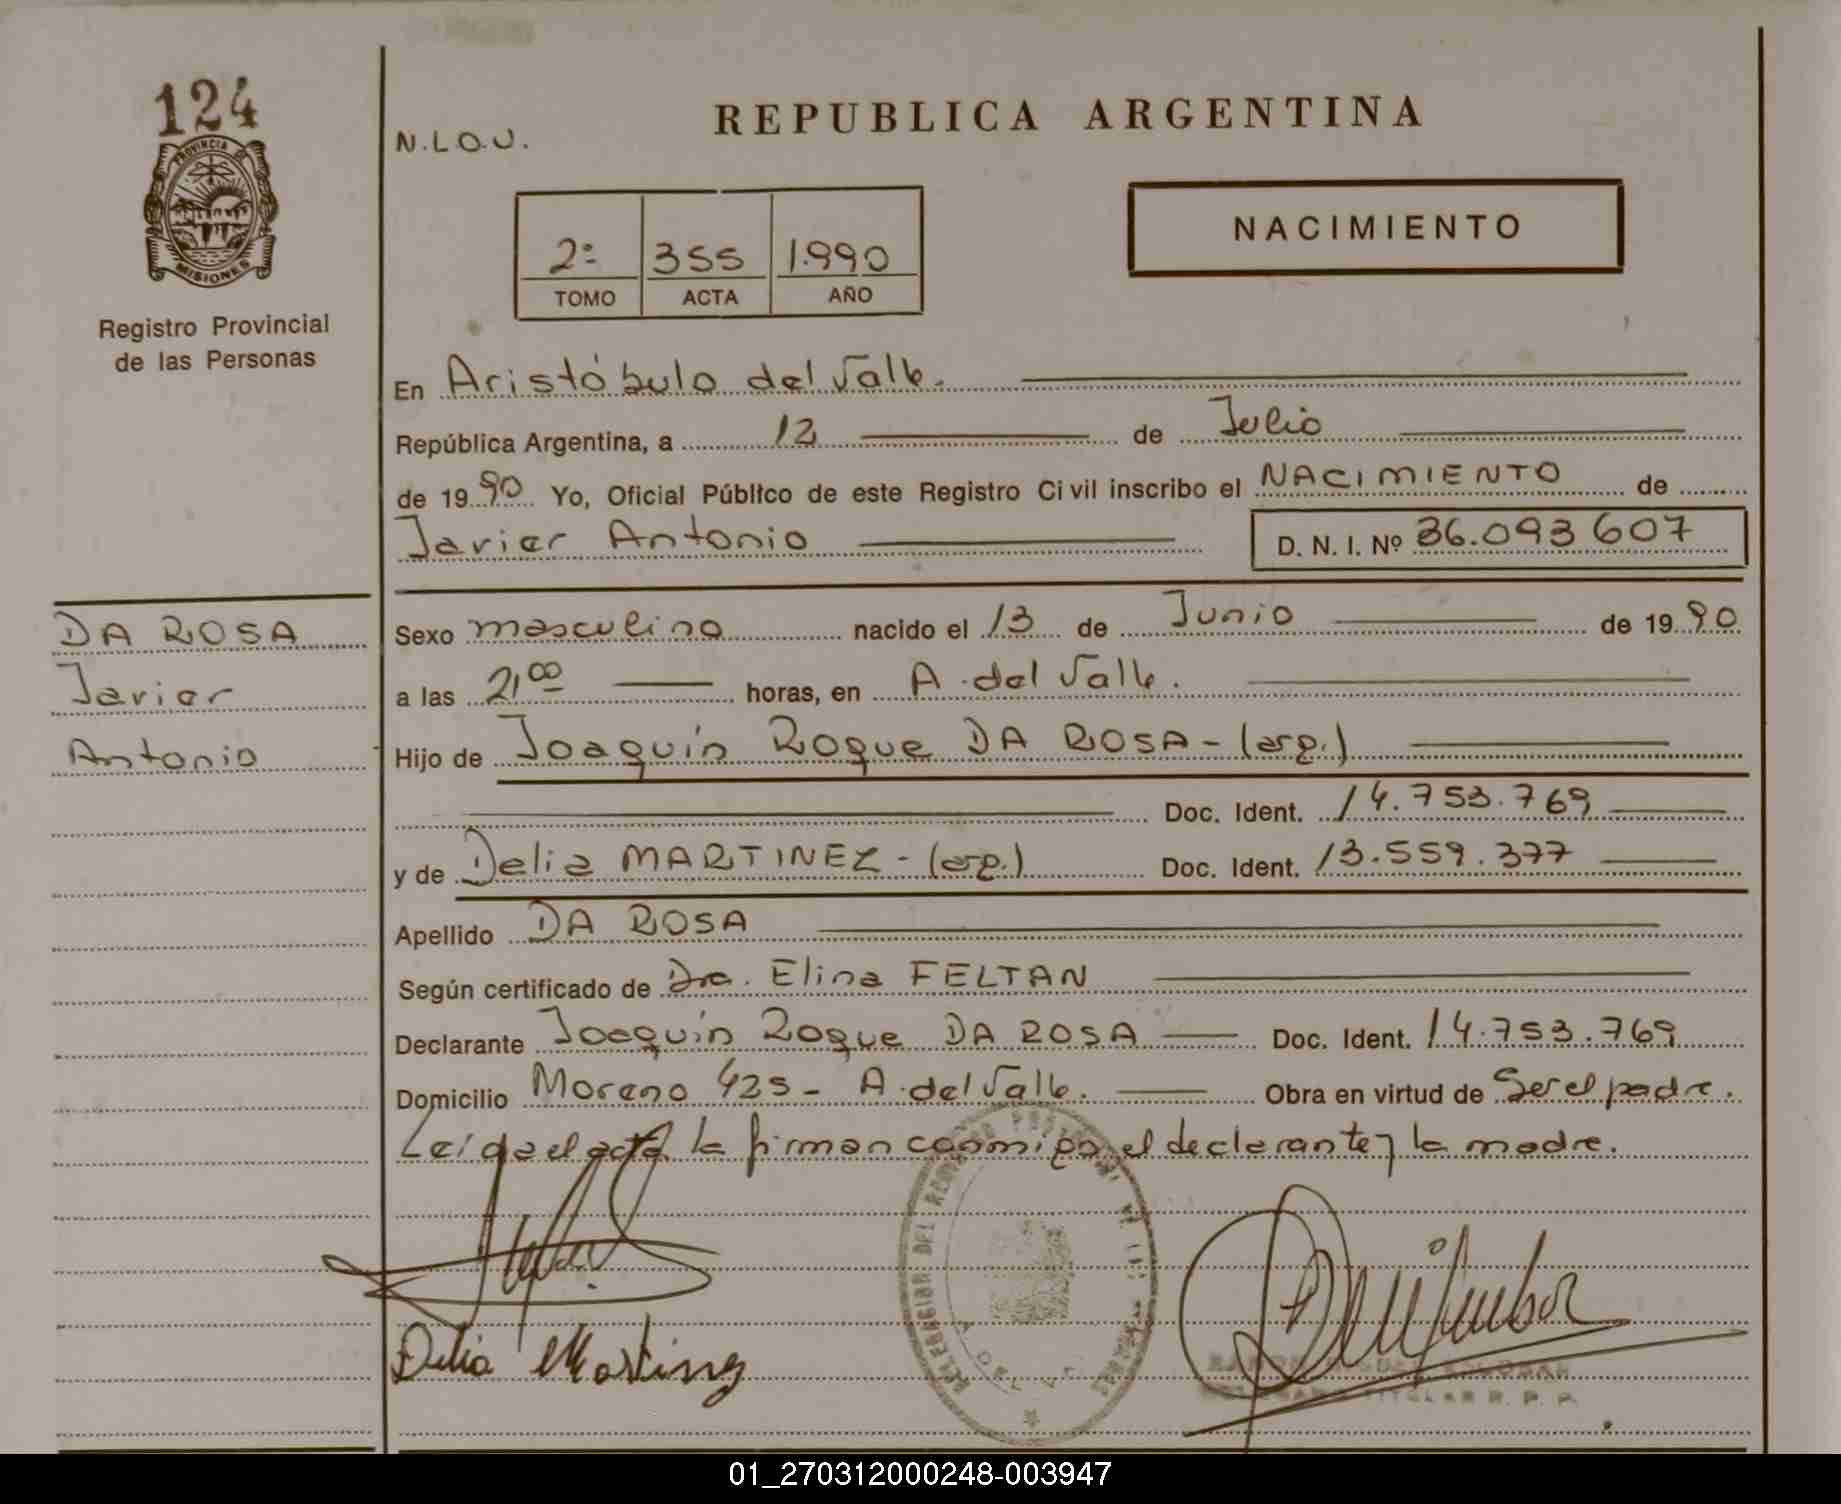 124
PROVINCIA DE
MISIONES
Registro Provincial
de las Personas
N.L.O.U.
REPUBLICA ARGENTINA
2º 355 1.990
TOMO ACTA AÑO
NACIMIENTO
En Aristóbulo del Valle.
República Argentina, a 12 de Julio
de 1990 Yo, Oficial Público de este Registro Civil inscribo el NACIMIENTO de
Javier Antonio D. N. I. Nº 36.093607
DA ROSA
Javier
Antonio
Sexo masculino nacido el 13 de Junio de 1990
a las 21,00 horas, en A. del Valle.
Hijo de Joaquín Roque DA ROSA - (arg.)
Doc. Ident. 14.753.769
y de Delia MARTINEZ - (arg.) Doc. Ident. 13.559.377
Apellido DA ROSA
Según certificado de Dra. Elina FELTAN
Declarante Joaquín Roque DA ROSA Doc. Ident. 14.753.769
Domicilio Moreno 425 - A. del Valle. Obra en virtud de Ser el padre.
Leída el acta la firman conmigo el declarante y la madre.
Delia Martinez
01_270312000248-003947